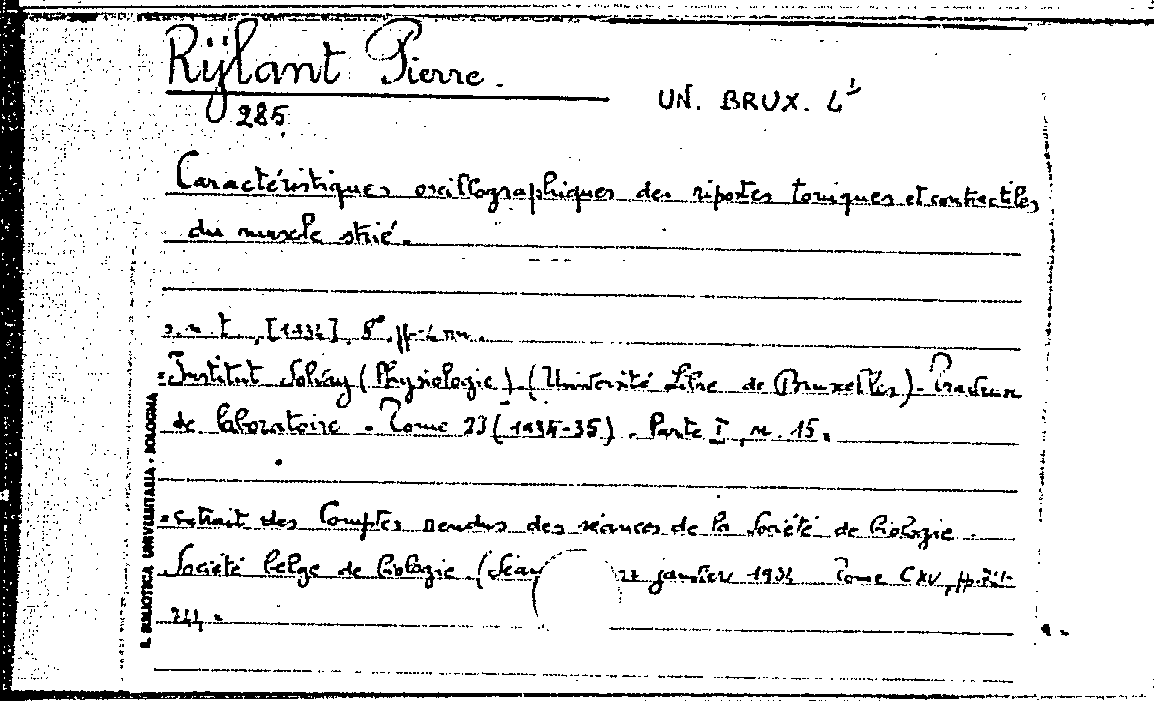 Rijlant Pierre.
UN. BRUX. L¹
285
Caractéristiques oscillographiques des ripostes toniques et contractiles
du muscle strié.
s.n.t., [1934], 8°, pp.
=Institut Solvay (Physiologie). (Université Libre de Bruxelles). Travaux
de laboratoire. Tome 23 (1934-35). Partie I, n. 15.
=extrait des Comptes rendus des séances de la Société de biologie.
Société belge de biologie. (Séan 27 janvier 1934 Tome CXV, pp.
R. BIBLIOTECA UNIVERSITARIA - BOLOGNA